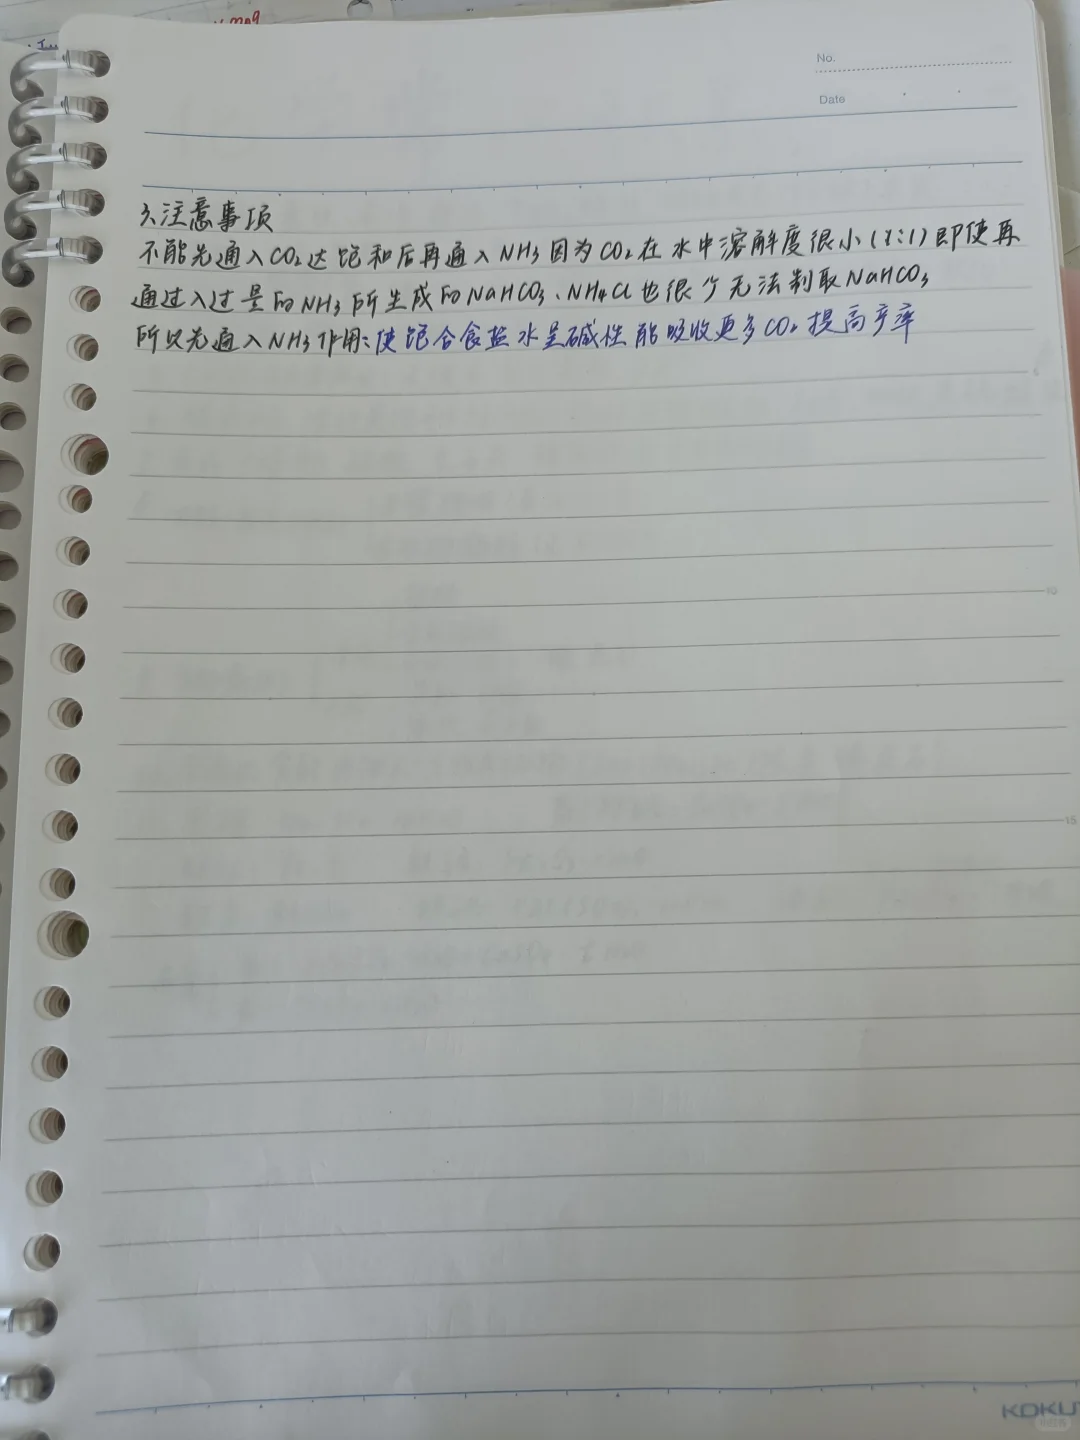 No.
Date
3、注意事项
不能先通入CO₂达饱和后再通入NH₃因为CO₂在水中溶解度很小(1:1)即使再
通过入过量的NH₃所生成的NaHCO₃、NH₄Cl也很少无法制取NaHCO₃
所以先通入NH₃作用:使饱合食盐水呈碱性能吸收更多CO₂提高产率
5
10
15
KOKU